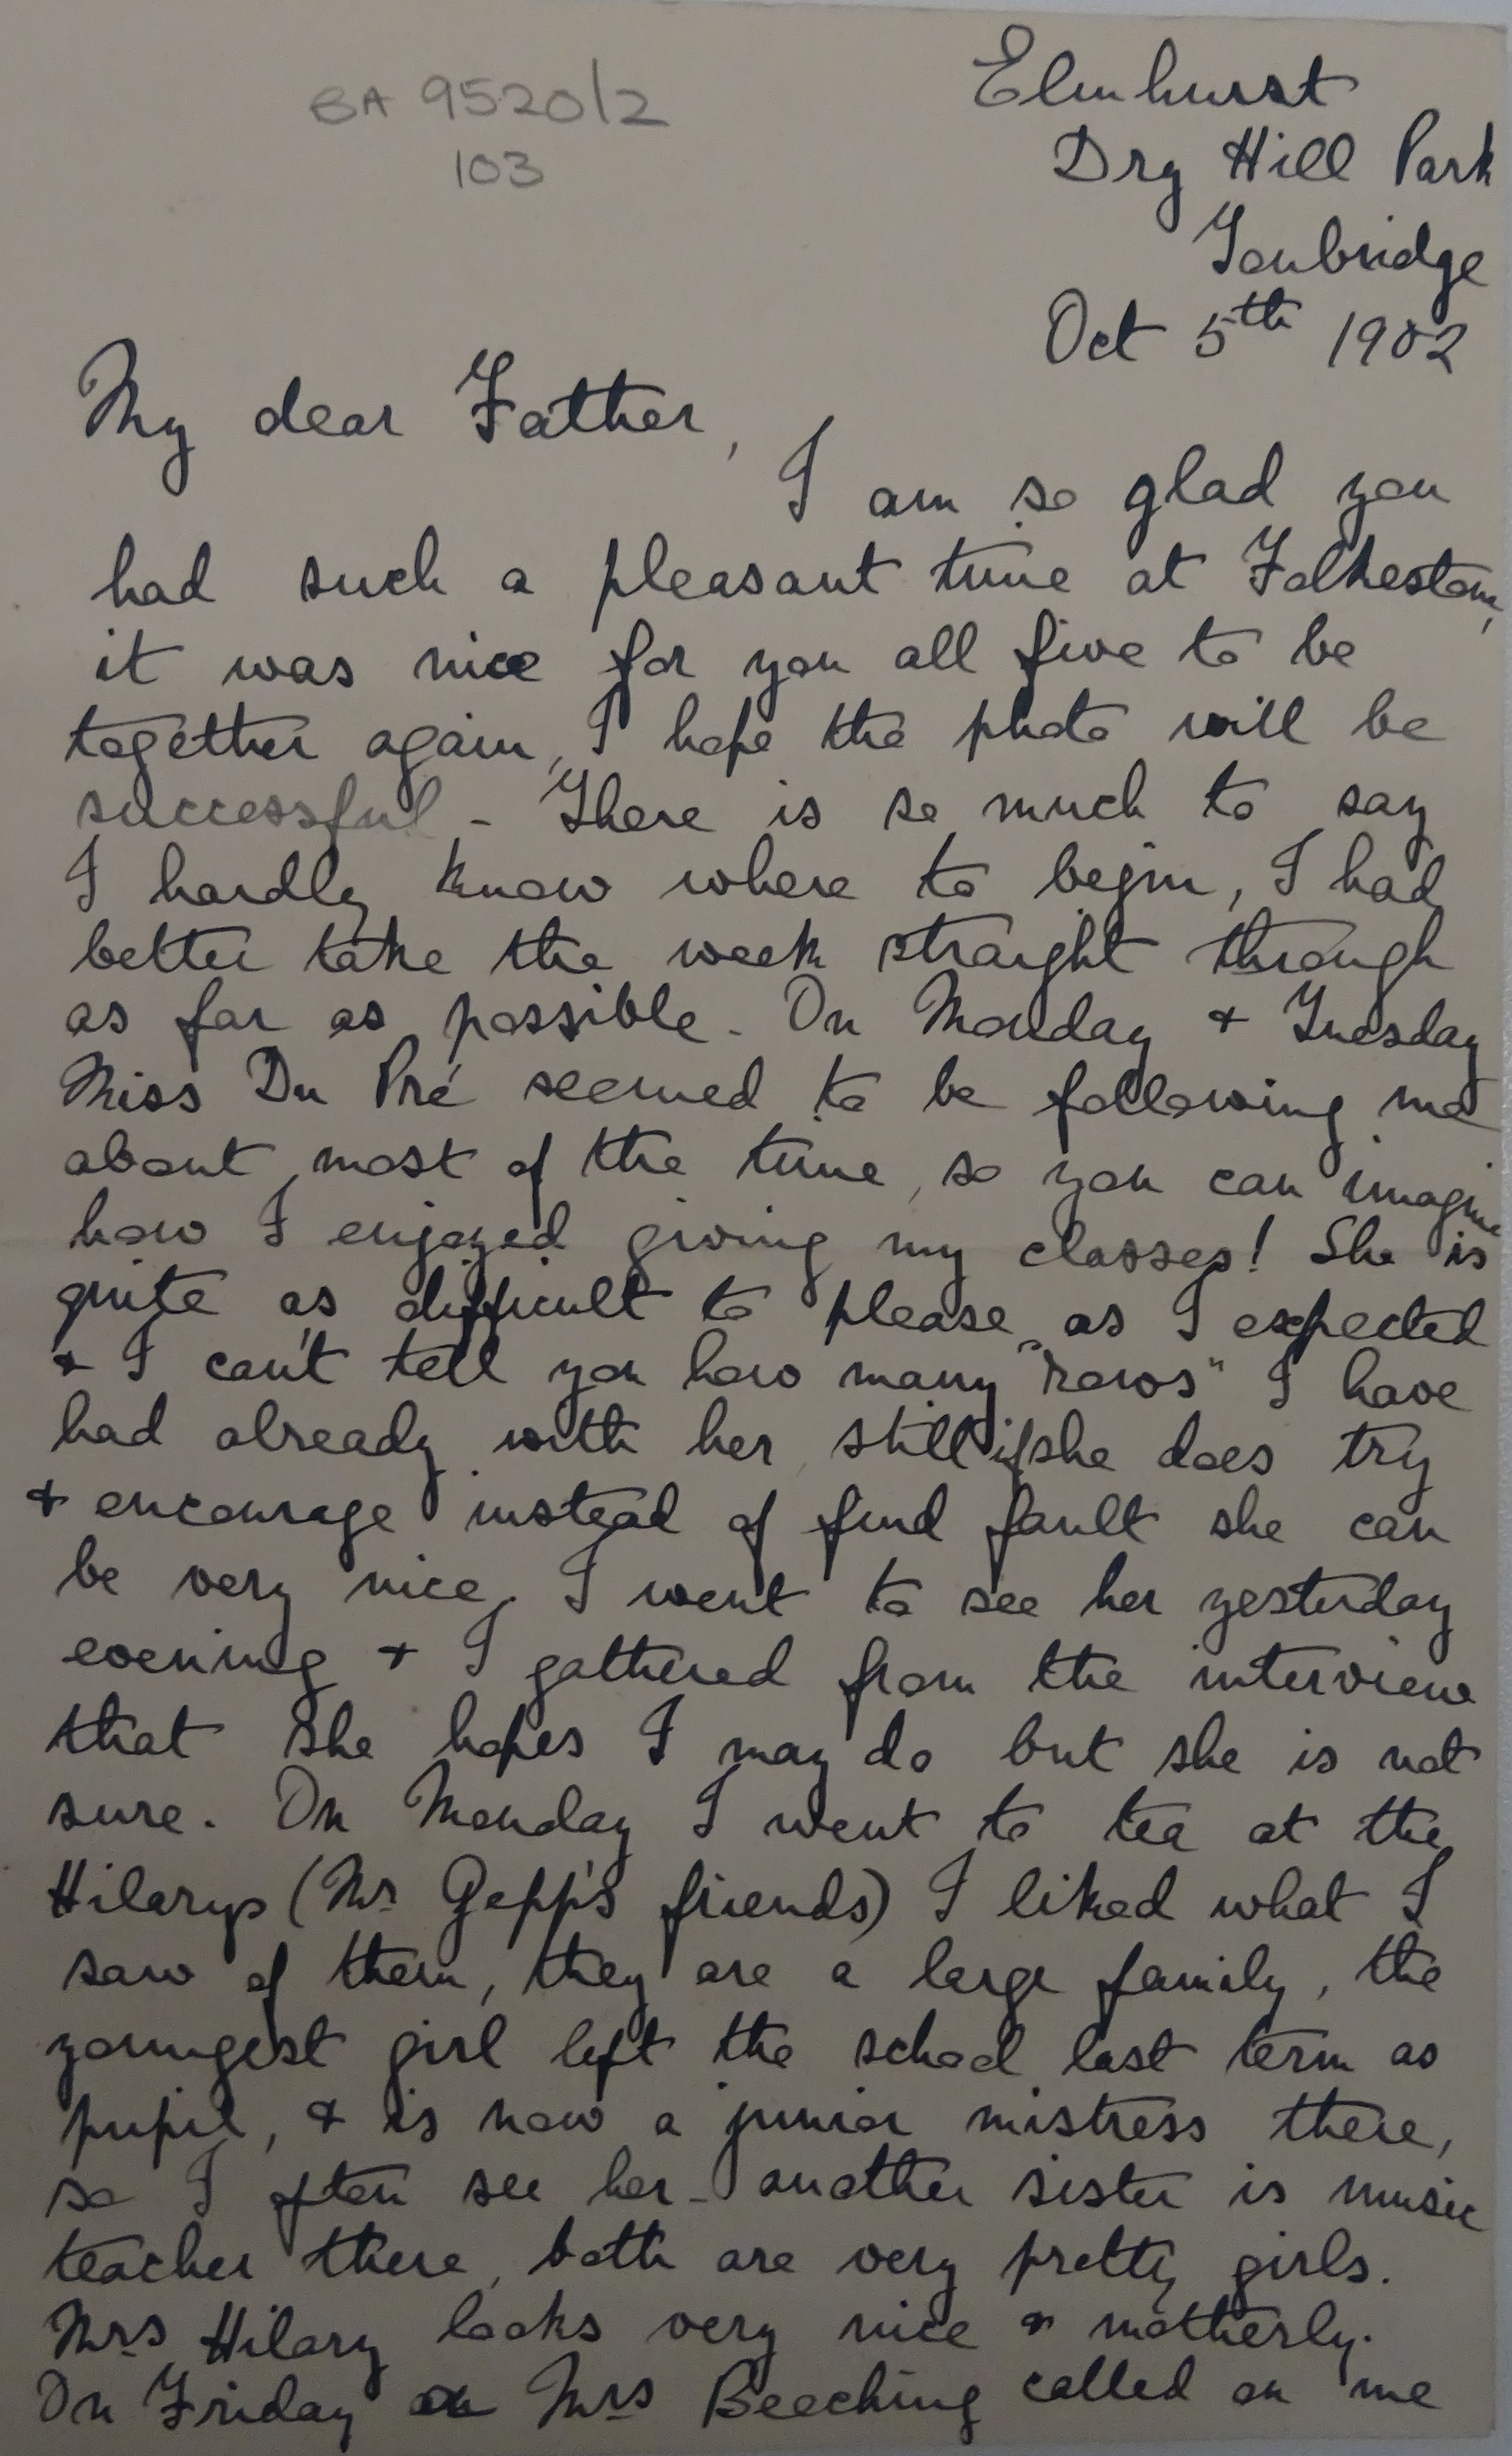 BA 9520/2
103
Elmhurst
Dry Hill Park
Tonbridge
Oct 5th 1902
My dear Father,
I am so glad you
had such a pleasant time at Folkestone,
it was nice for you all five to be
together again, I hope the photo will be
successful - There is so much to say
I hardly know where to begin, I had
better take the week straight through
as far as possible - On Monday & Tuesday
Miss Du Pré seemed to be following me
about most of the time, so you can imagine
how I enjoyed giving my classes! She is
quite as difficult to please as I expected
& I can't tell you how many "rows" I have
had already with her, still if she does try
& encourage instead of find fault she can
be very nice. I went to see her yesterday
evening & I gathered from the interview
that she hopes I may do but she is not
sure. On Monday I went to tea at the
Hilarys (Mr Gepp's friends) I liked what I
saw of them, they are a large family, the
youngest girl left the school last term as
pupil, & is now a junior mistress there,
so I often see her - another sister is music
teacher there, both are very pretty girls.
Mrs Hilary looks very nice & motherly.
On Friday Mrs Beeching called on me